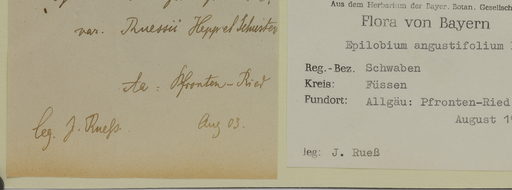 var. Ruessii Heppel Schuster
Aa: Pfronten-Ried
leg. J. Rueß. Aug 03.
Aus dem Herbarium der Bayer. Botan. Gesellsch
Flora von Bayern
Epilobium angustifolium
Reg.-Bez. Schwaben
Kreis: Füssen
Fundort: Allgäu: Pfronten-Ried
August 19
leg: J. Rueß